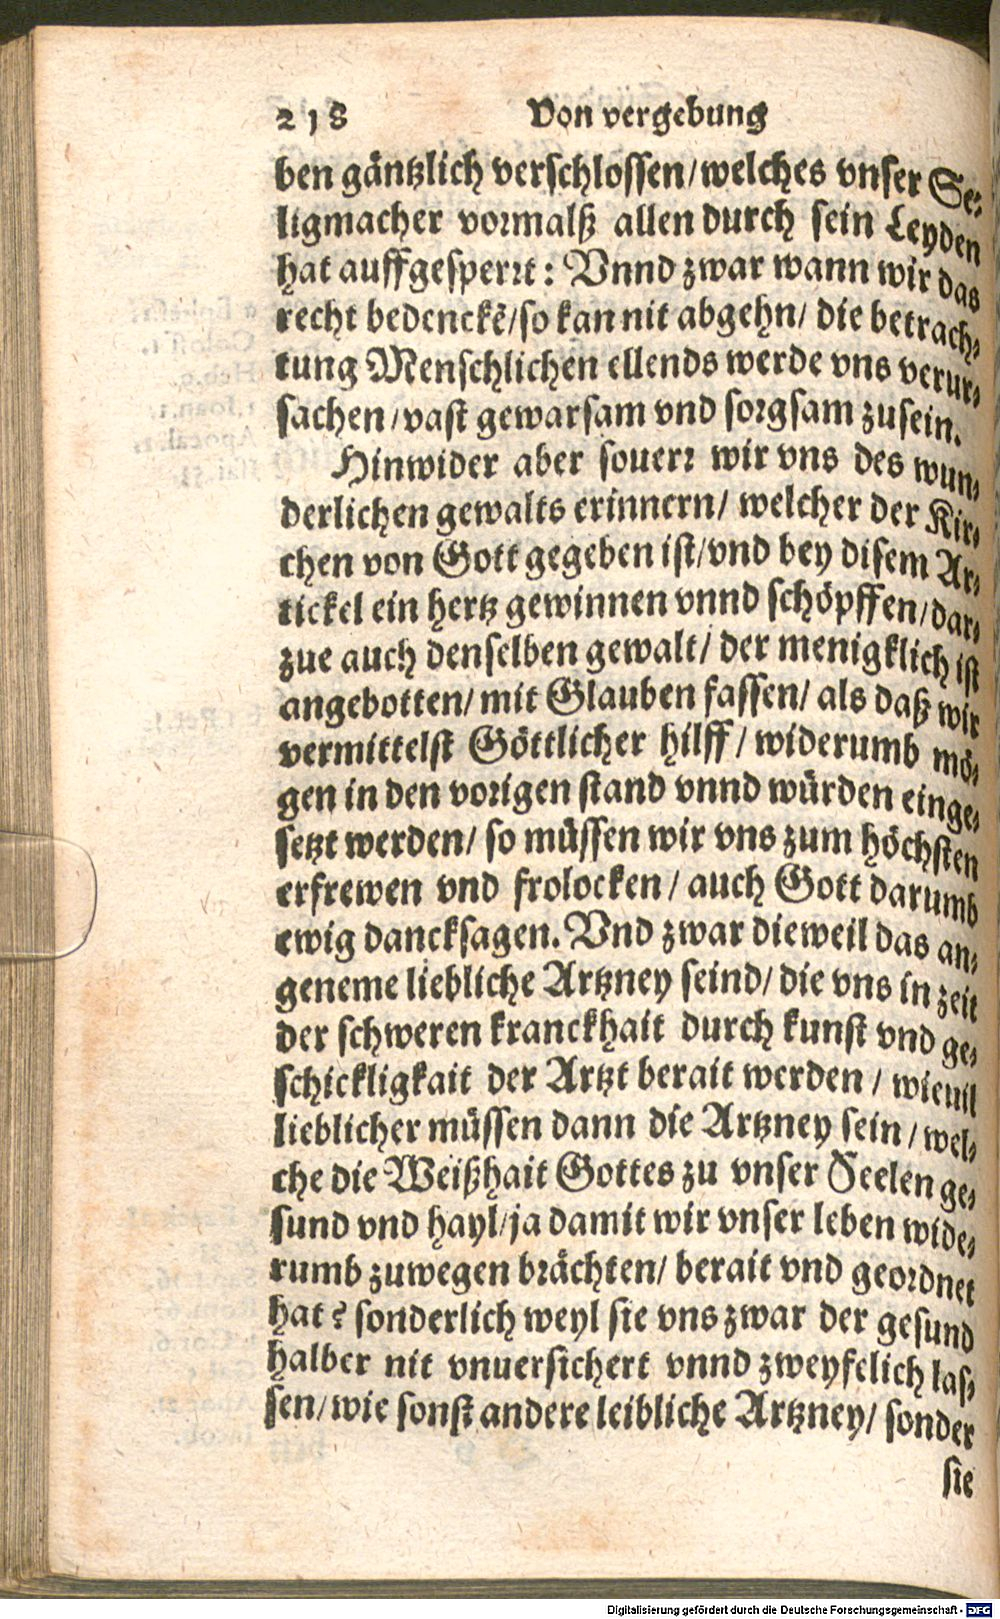 218 Von vergebung
ben gäntzlich verschlossen/welches vnser Se-
ligmacher vormalß allen durch sein Leyden
hat auffgesperrt: Vnnd zwar wann wir das
recht bedenckē/so kan nit abgehn/ die betrach-
tung Menschlichen ellends werde vns verur-
sachen/vast gewarsam vnd sorgsam zusein.
Hinwider aber souerr wir vns des wun-
derlichen gewalts erinnern/ welcher der Kir-
chen von Gott gegeben ist/vnd bey disem Ar-
tickel ein hertz gewinnen vnnd schöpffen/dar-
zue auch denselben gewalt/ der menigklich ist
angebotten/ mit Glauben fassen/ als daß wir
vermittelst Göttlicher hilff/ widerumb mö-
gen in den vorigen stand vnnd würden einge-
setzt werden/ so müssen wir vns zum höchsten
erfrewen vnd frolocken/ auch Gott darumb
ewig dancksagen. Vnd zwar dieweil das an-
geneme liebliche Artzney seind/ die vns in zeit
der schweren kranckhait durch kunst vnd ge-
schickligkait der Artzt berait werden/ wieuil
lieblicher müssen dann die Artzney sein/ wel-
che die Weißhait Gottes zu vnser Seelen ge-
sund vnd hayl/ja damit wir vnser leben wide-
rumb zuwegen brächten/ berait vnd geordnet
hat? sonderlich weyl sie vns zwar der gesund
halber nit vnuersichert vnnd zweyfelich las-
sen/wie sonst andere leibliche Artzney/ sonder
sie
Digitalisierung gefördert durch die Deutsche Forschungsgemeinschaft - DFG